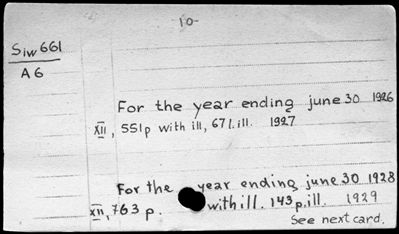 10-
Siw 661
A6
For the year ending june 30 1926
XII, 551p with ill, 67 l. ill. 1927
For the year ending june 30 1928
XII, 763 p. with ill. 143 p. ill. 1929
See next card.